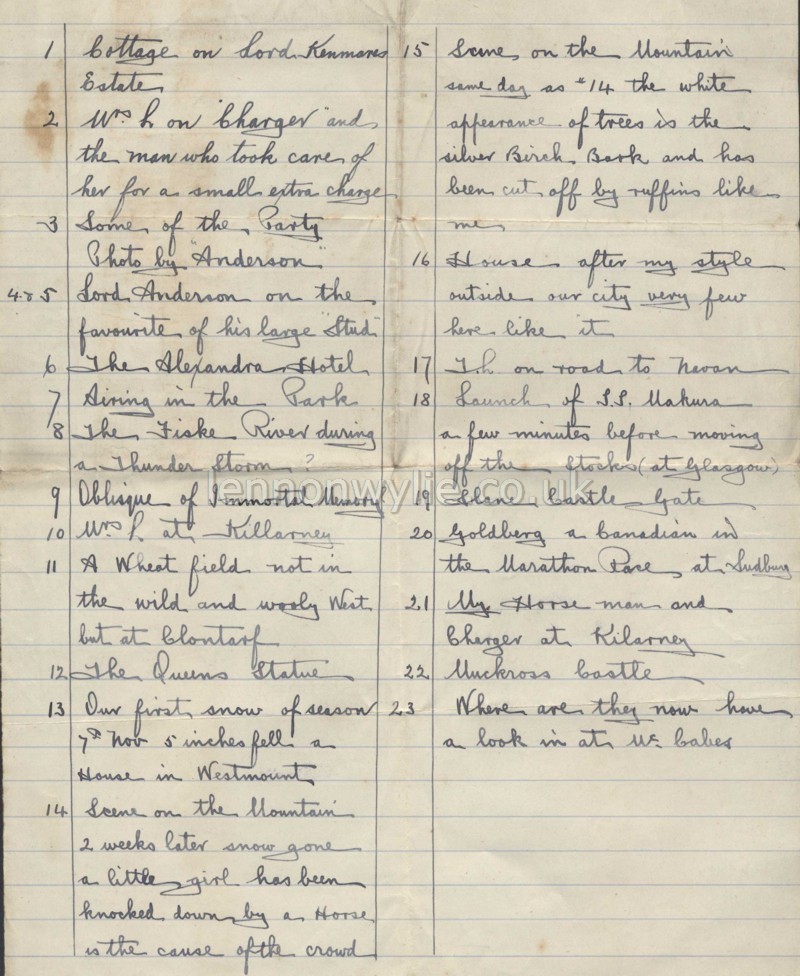 1 Cottage on Lord Kenmares
Estate
2 Mrs L on "Charger" and
the man who took care of
her for a small extra charge
3 Some of the Party
Photo by "Anderson"
4 & 5 Lord Anderson on the
favourite of his large "Stud"
6 The Alexandra Hotel
7 Airing in the Park
8 The Fiske River during
a Thunder Storm?
9 Oblisque of Immortal Memory
10 Mrs L at Killarney
11 A Wheat field not in
the wild and wooly West
but at Clontarf
12 The Queens Statue
13 Our first snow of season
7th Nov 5 inches fell a
House in Westmount
14 Scene on the Mountain
2 weeks later snow gone
a little girl has been
knocked down by a Horse
is the cause of the crowd
15 Scene on the Mountain
same day as #14 the white
appearance of trees is the
silver Birch Bark and has
been cut off by ruffins like
me
16 House after my style
outside our city very few
here like it
17 T.L on road to Navan
18 Launch of S.S. Makura
a few minutes before moving
off the Stocks (at Glasgow)
19 Slane Castle Gate
20 Goldberg a Canadian in
the Marathon Race at Sudbury
21 My Horse man and
Charger at Kilarney
22 Muckross Castle
23 Where are they now have
a look in at Mc Cabes
lennonwylie.co.uk